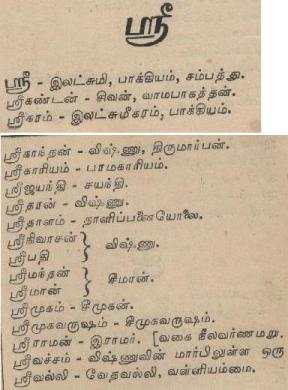 ஸ்ரீ
ஸ்ரீ - இலட்சுமி, பாக்கியம், சம்பத்து.
ஸ்ரீகண்டன் - சிவன், வாமபாகத்தன்.
ஸ்ரீகரம் - இலட்சுமீகரம், பாக்கியம்.
ஸ்ரீகாந்தன் - விஷ்ணு, திருமார்பன்.
ஸ்ரீகாரியம் - பரமகாரியம்.
ஸ்ரீஜயந்தி - சயந்தி.
ஸ்ரீதரன் - விஷ்ணு.
ஸ்ரீதாளம் - நாளிப்பனையோலை.
ஸ்ரீநிவாசன் } விஷ்ணு.
ஸ்ரீபதி
ஸ்ரீமந்தன் } சீமான்.
ஸ்ரீமான்
ஸ்ரீமுகம் - சீமுகன்.
ஸ்ரீமுகவருஷம் - சீமுகவருஷம்.
ஸ்ரீராமன் - இராமர். [வகை நீலவர்ணமறு.
ஸ்ரீவச்சம் - விஷ்ணுவின் மார்பிலுள்ள ஒரு
ஸ்ரீவல்லி - வேதவல்லி, வள்ளியம்மை.